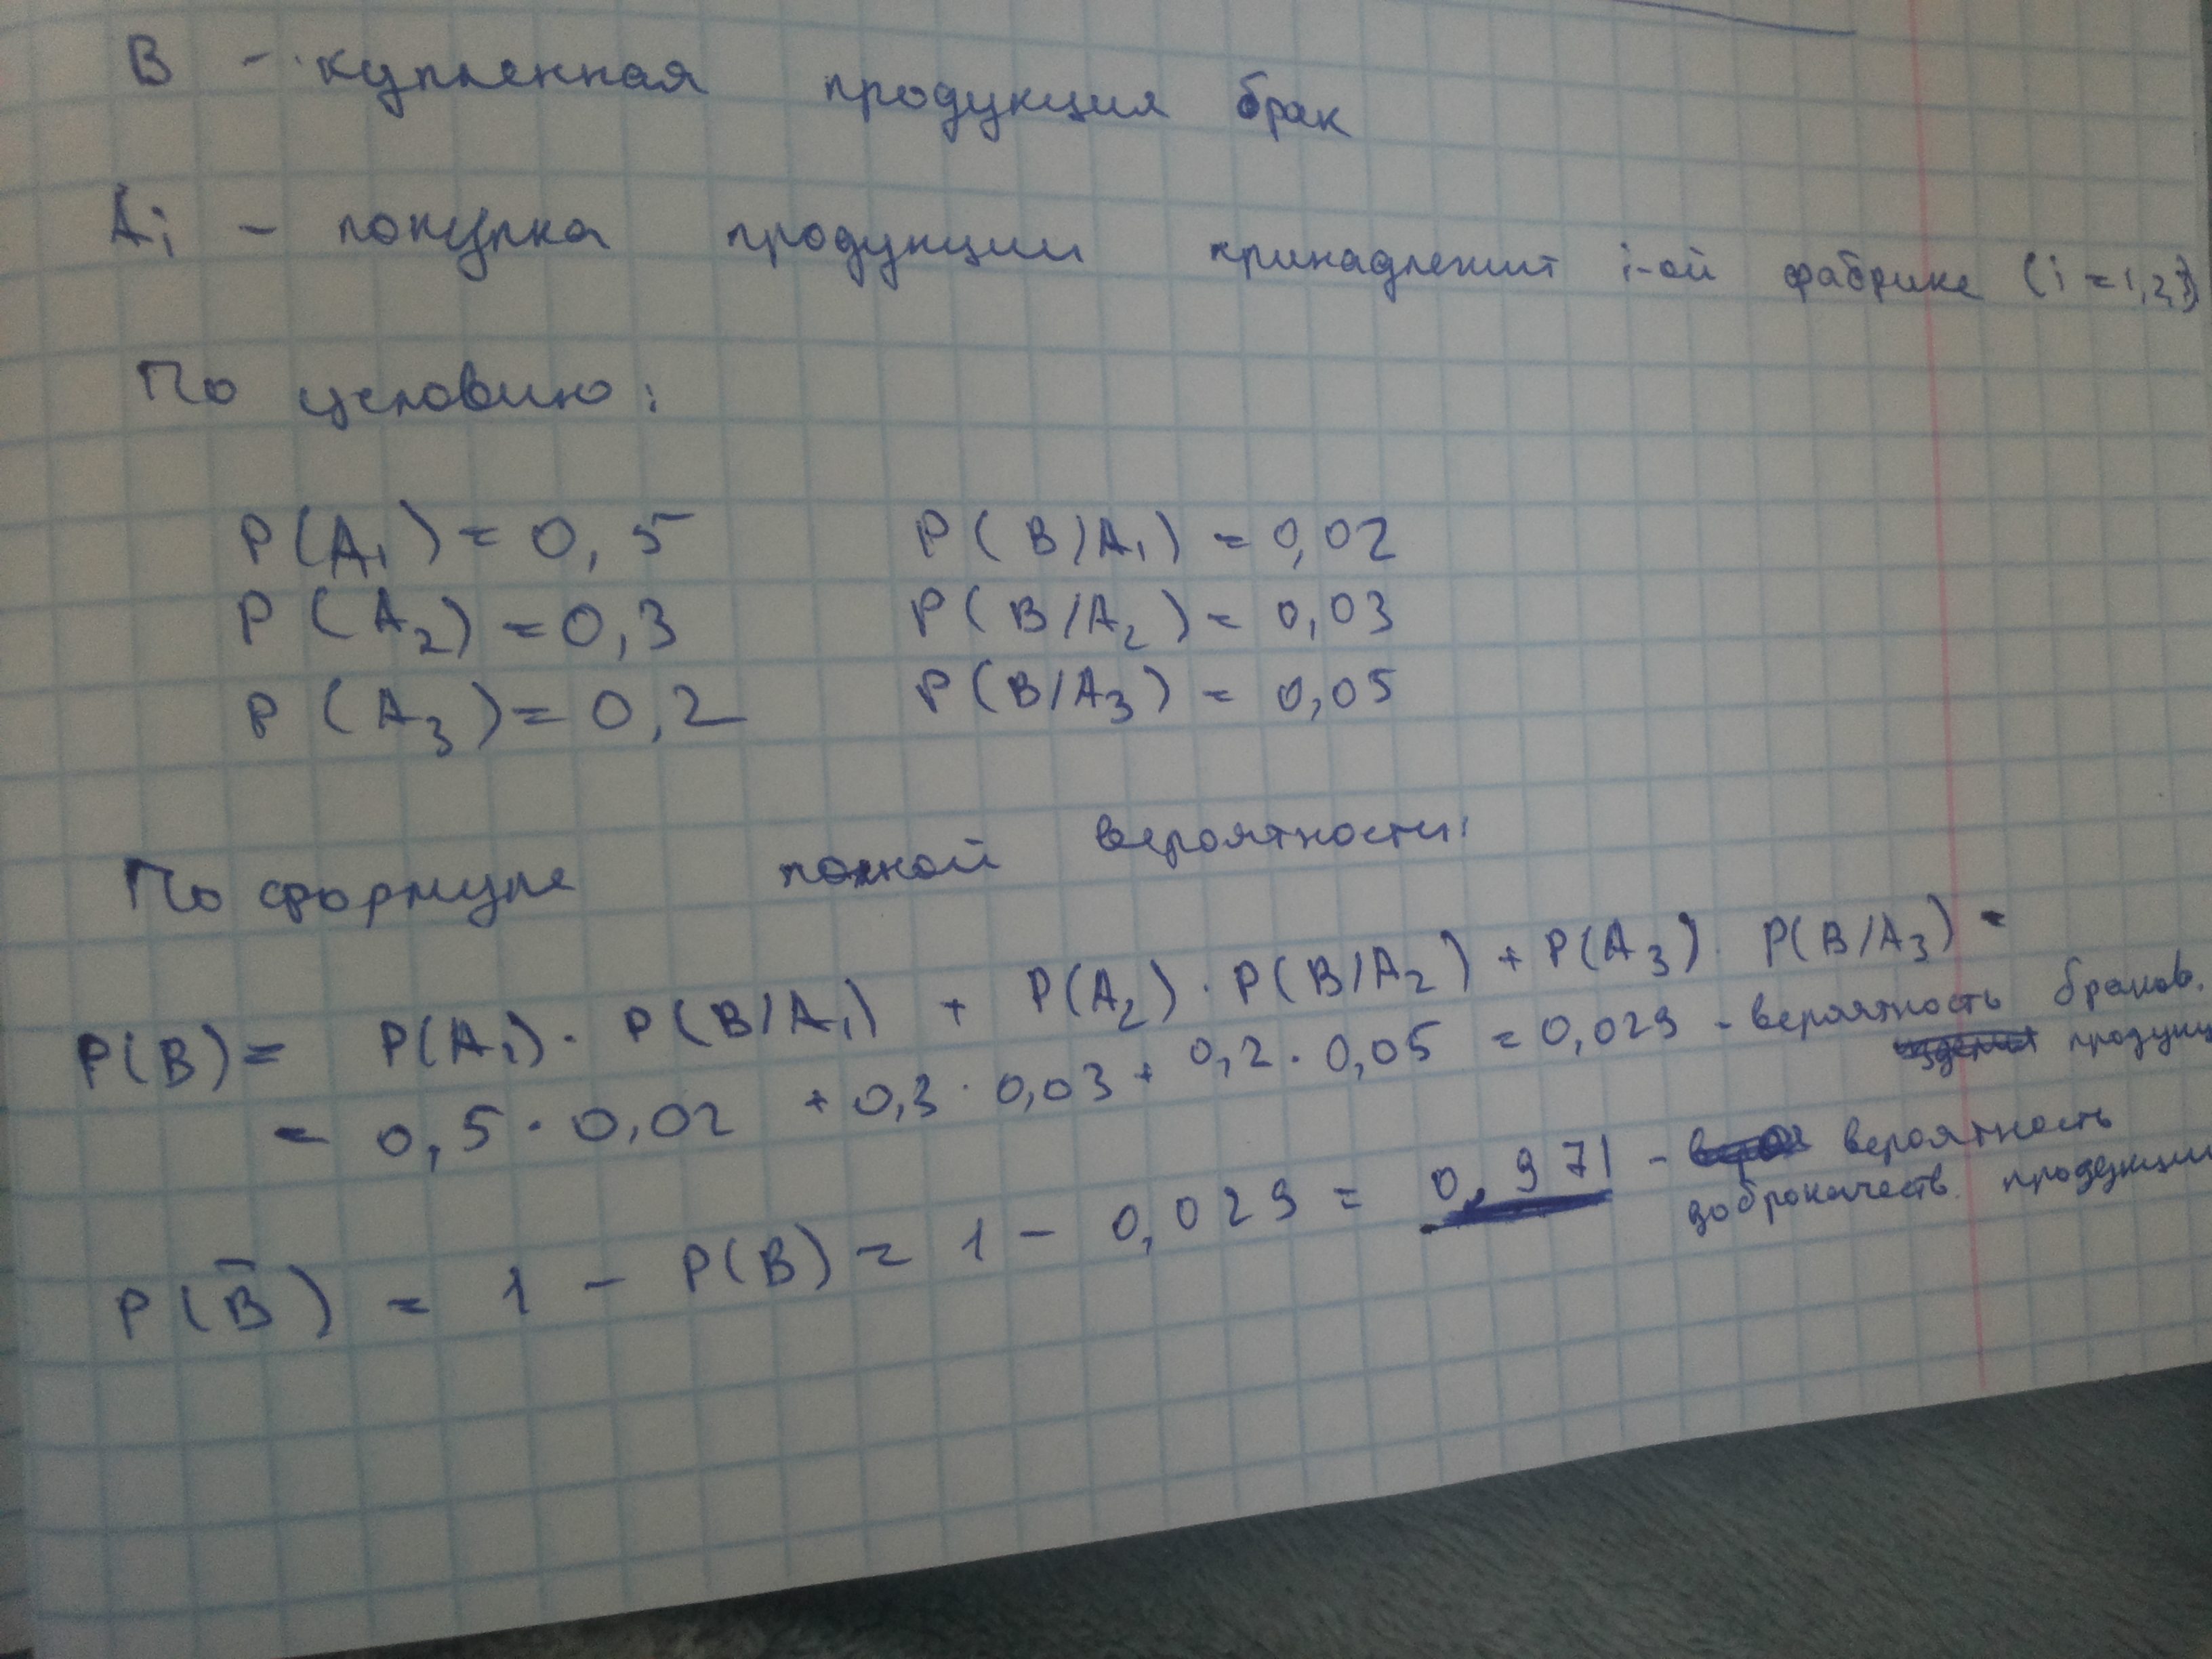 B - купленная продукция брак
Ai - покупка продукции принадлежит i-ой фабрике (i = 1,2,3)
По условию:
P(A₁) = 0,5 P(B/A₁) = 0,02
P(A₂) = 0,3 P(B/A₂) = 0,03
P(A₃) = 0,2 P(B/A₃) = 0,05
По формуле полной вероятности:
P(B) = P(A₁) · P(B/A₁) + P(A₂) · P(B/A₂) + P(A₃) · P(B/A₃) =
= 0,5 · 0,02 + 0,3 · 0,03 + 0,2 · 0,05 = 0,029 - вероятность браков.
продукц
P(B̅) = 1 - P(B) = 1 - 0,029 = 0,971 - вероятность
доброкачеств. продукции